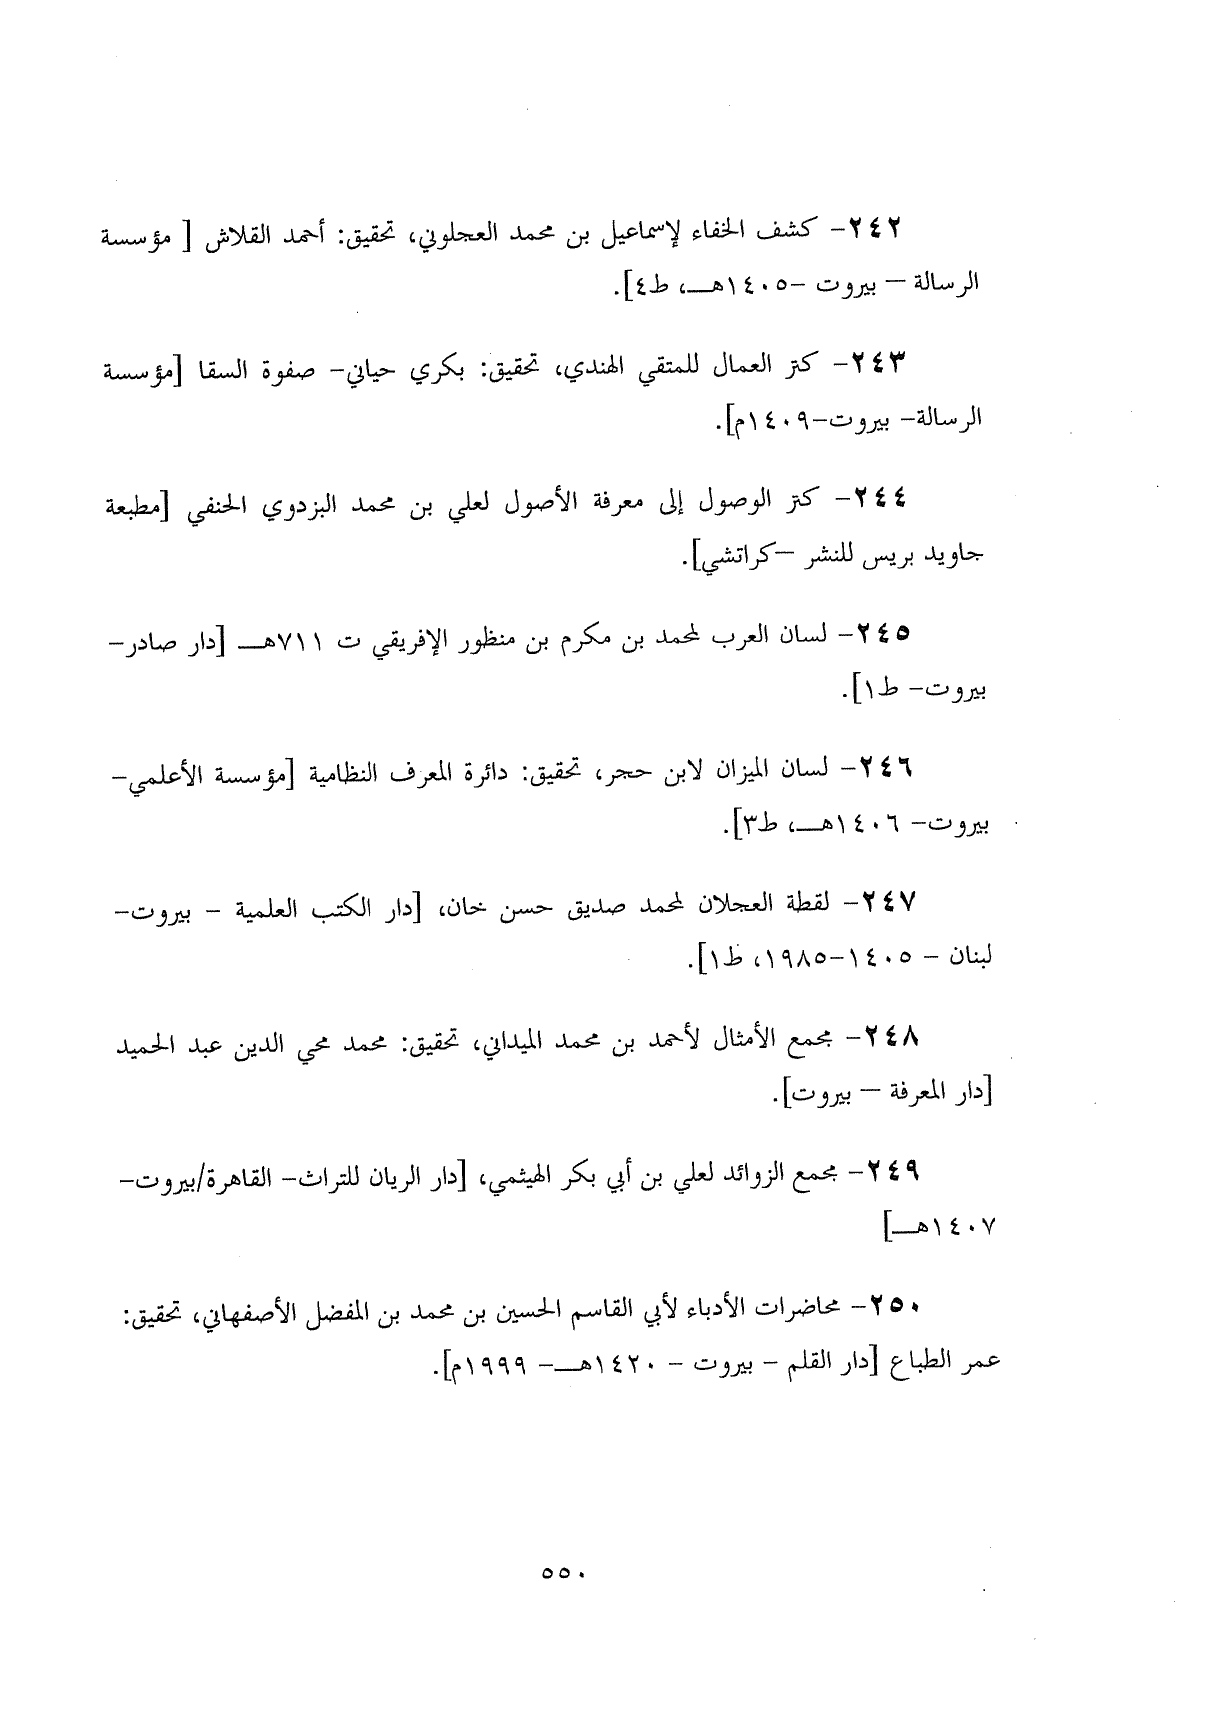 ٢٤٢- كشف الخفاء لإسماعيل بن محمد العجلوني، تحقيق: أحمد القلاش [ مؤسسة
الرسالة – بيروت –١٤٠٥هـ، ط٤].
٢٤٣- كتر العمال للمتقي الهندي، تحقيق: بكري حياني- صفوة السقا [مؤسسة
الرسالة- بيروت-١٤٠٩م].
٢٤٤- كتر الوصول إلى معرفة الأصول لعلي بن محمد البزدوي الحنفي [مطبعة
جاويد بريس للنشر –كراتشي].
٢٤٥- لسان العرب لمحمد بن مكرم بن منظور الإفريقي ت ٧١١هـ [دار صادر-
بيروت- ط١].
٢٤٦- لسان الميزان لابن حجر، تحقيق: دائرة المعرف النظامية [مؤسسة الأعلمي-
بيروت- ١٤٠٦هـ، ط٣].
٢٤٧- لقطة العجلان لمحمد صديق حسن خان، [دار الكتب العلمية - بيروت-
لبنان - ١٤٠٥-١٩٨٥، ط١].
٢٤٨- مجمع الأمثال لأحمد بن محمد الميداني، تحقيق: محمد محي الدين عبد الحميد
[دار المعرفة – بيروت].
٢٤٩- مجمع الزوائد لعلي بن أبي بكر الهيثمي، [دار الريان للتراث- القاهرة/بيروت-
١٤٠٧هـ]
٢٥٠- محاضرات الأدباء لأبي القاسم الحسين بن محمد بن المفضل الأصفهاني، تحقيق:
عمر الطباع [دار القلم - بيروت - ١٤٢٠هـ- ١٩٩٩م].
٥٥٠